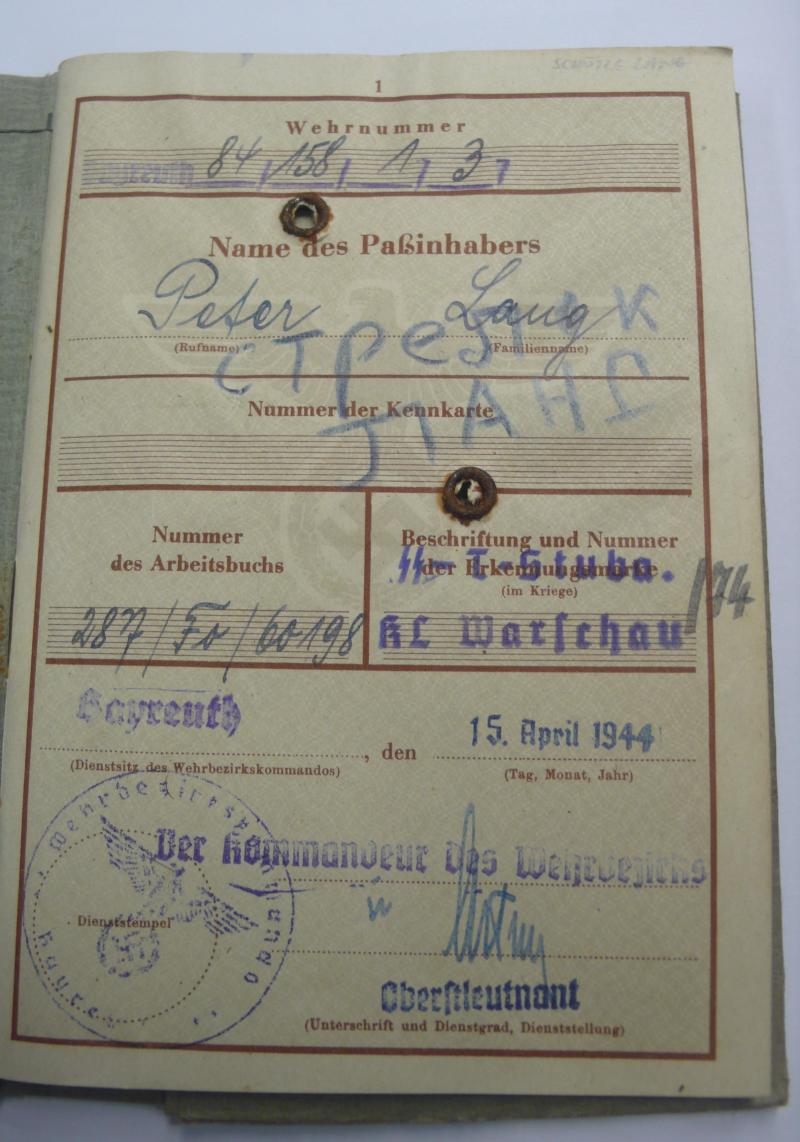 SCHÜTZE LANG
1
Wehrnummer
Bayreuth 84/158/1/3/
Name des Paßinhabers
Peter Lang
(Rufname) (Familienname)
стрелк
ЛАНГ
Nummer der Kennkarte
Nummer
des Arbeitsbuchs
287/Fo/60198
Beschriftung und Nummer
der Erkennungsmarke
(im Kriege)
SS-T-Stuba.
KL Warschau /74
Bayreuth, den 15. April 1944
(Dienstsitz des Wehrbezirkskommandos) (Tag, Monat, Jahr)
Der Kommandeur des Wehrbezirks
Dienststempel
Oberstleutnant
(Unterschrift und Dienstgrad, Dienststellung)